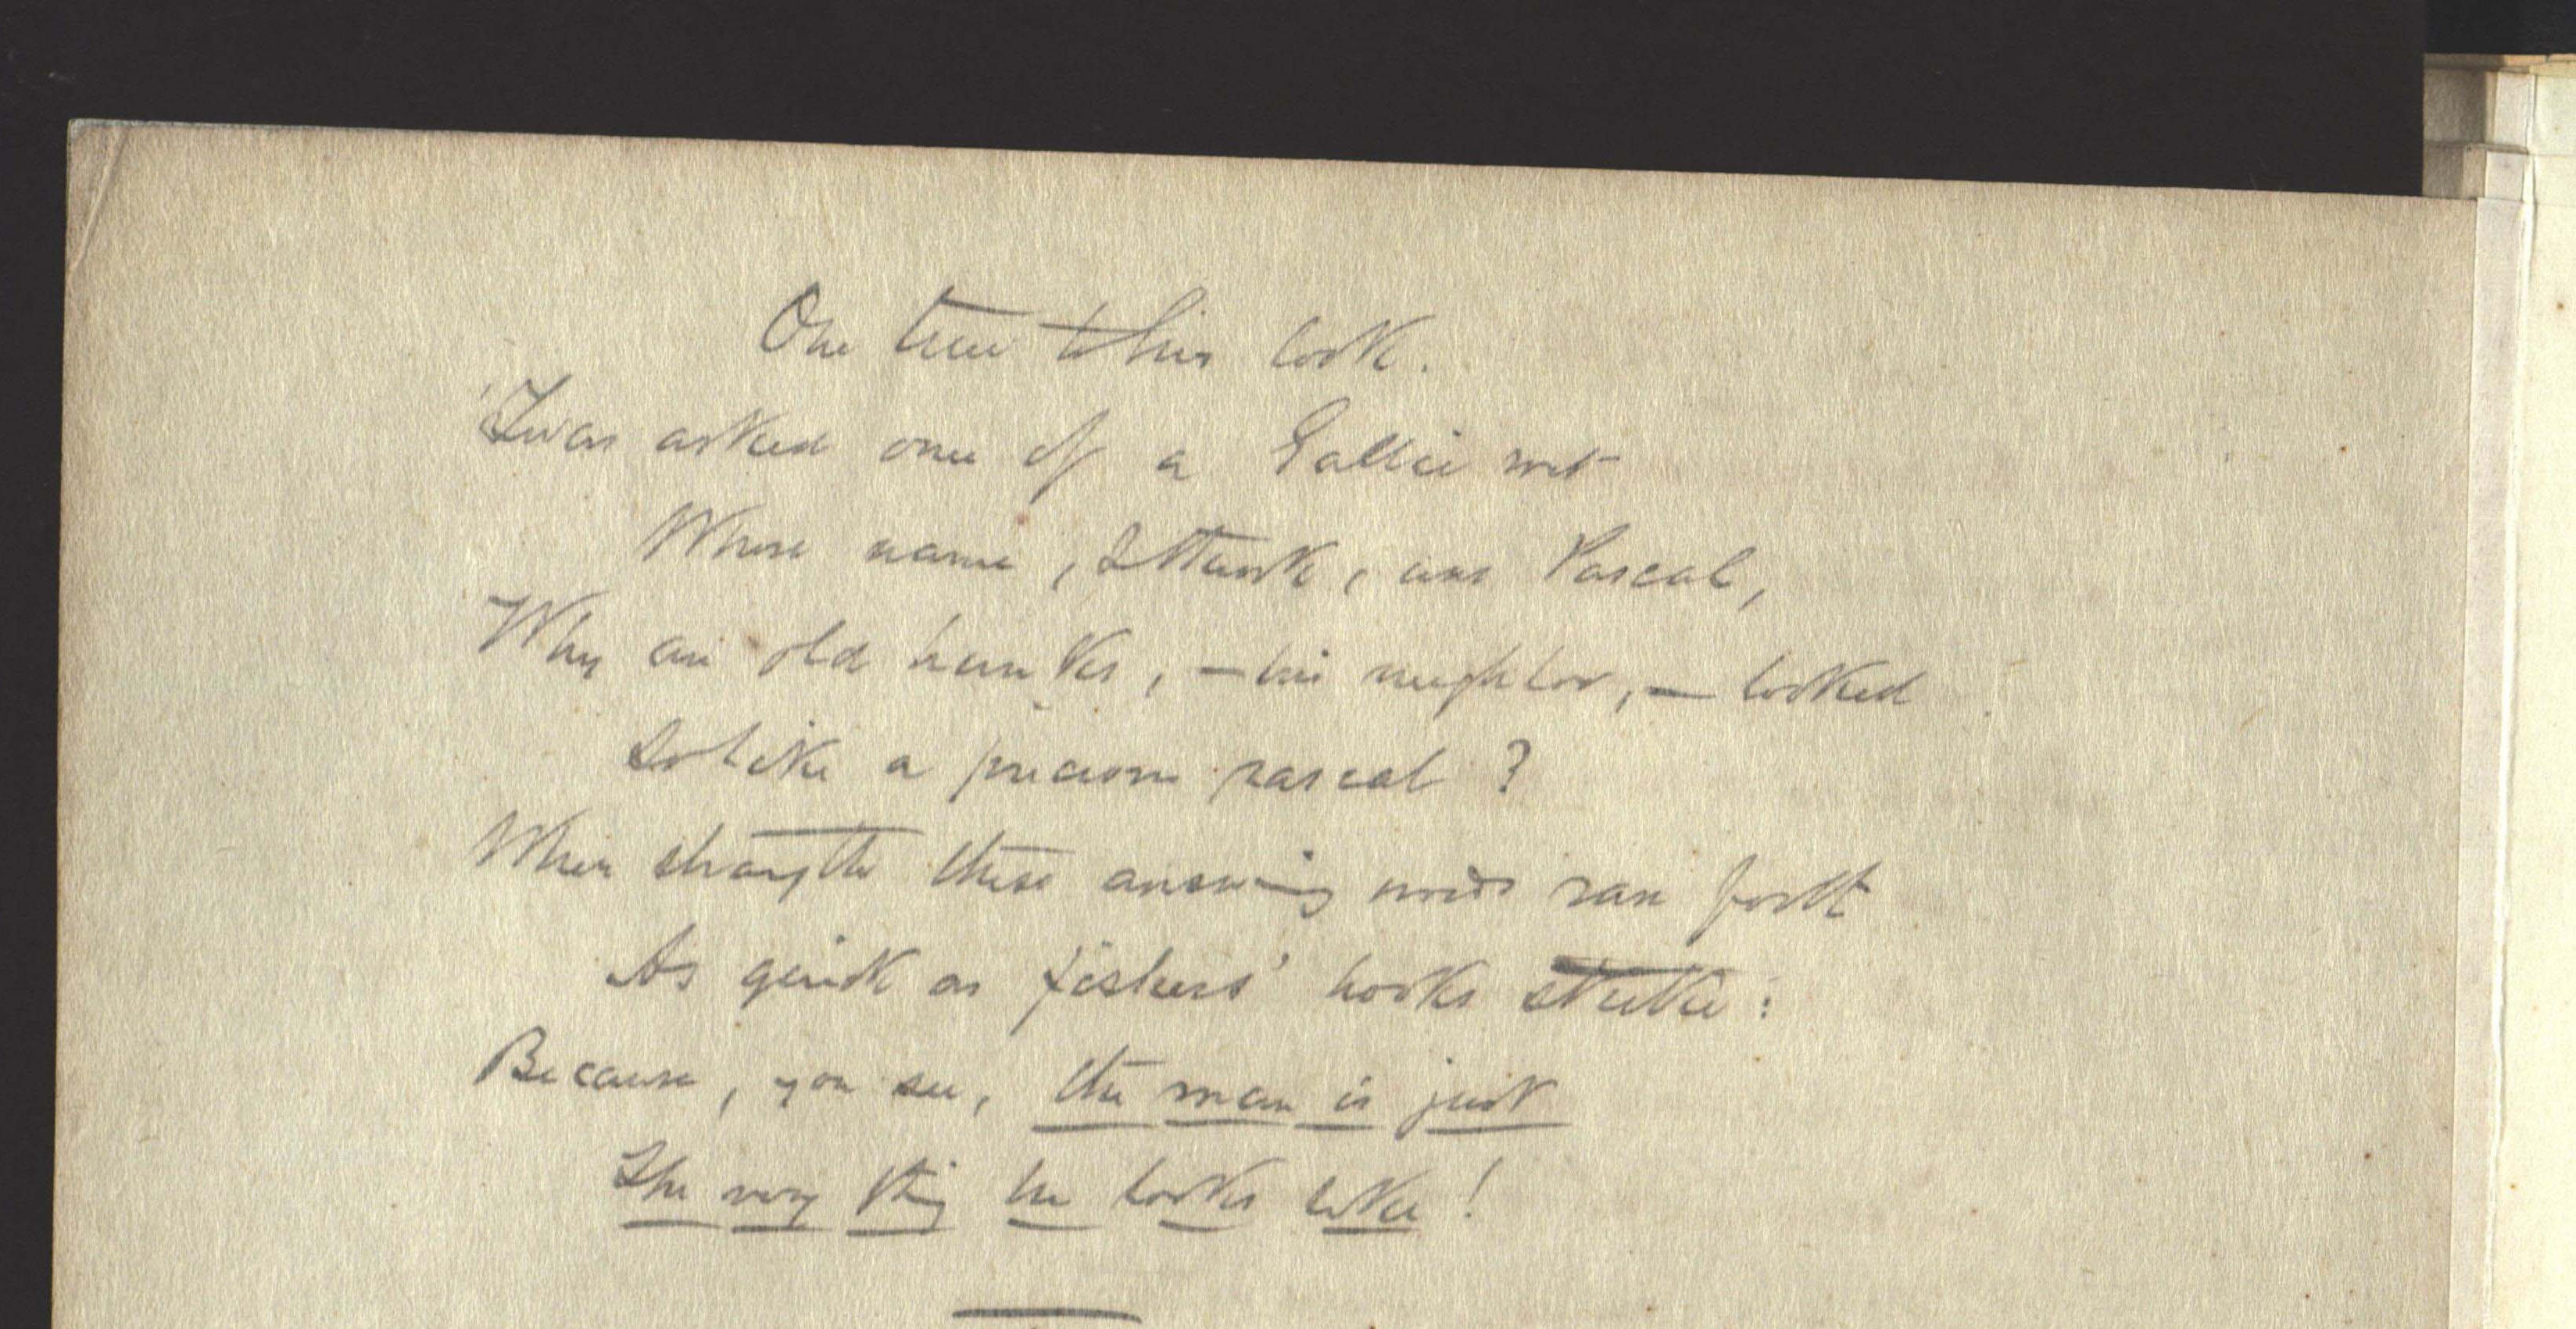 One true to his look.
'Twas asked once of a Gallic wit
Whose name, I think, was Pascal,
Why an old hunks, – his neighbor, – looked
So like a precious rascal?
When straight these answering words ran forth
As quick as fishers' hooks strike:
Because, you see, the man is just
The very thing he looks like!